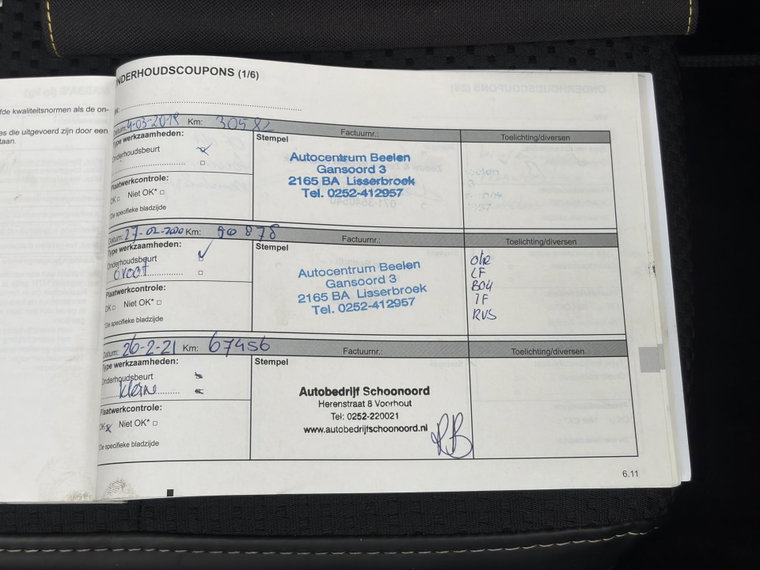 ONDERHOUDSCOUPONS (1/6)
fde kwaliteitsnormen als de on-
es die uitgevoerd zijn door een
taan.
Datum: 4-03-2019 Km: 30582
Factuurnr.:
Toelichting/diversen
Type werkzaamheden:
Onderhoudsbeurt
Stempel
Autocentrum Beelen
Gansoord 3
2165 BA Lisserbroek
Tel. 0252-412957
Plaatwerkcontrole:
OK □ Niet OK* □
*Zie specifieke bladzijde
Datum: 27-02-2020 Km: 50878
Factuurnr.:
Toelichting/diversen
Type werkzaamheden:
Onderhoudsbeurt
Groot
Stempel
Autocentrum Beelen
Gansoord 3
2165 BA Lisserbroek
Tel. 0252-412957
LF
IF
RVS
Plaatwerkcontrole:
OK □ Niet OK* □
*Zie specifieke bladzijde
Datum: 26-2-21 Km: 67456
Factuurnr.:
Toelichting/diversen
Type werkzaamheden:
Onderhoudsbeurt
Klein
Stempel
Autobedrijf Schoonoord
Herenstraat 8 Voorhout
Tel: 0252-220021
www.autobedrijfschoonoord.nl
Plaatwerkcontrole:
OK Niet OK* □
*Zie specifieke bladzijde
6.11